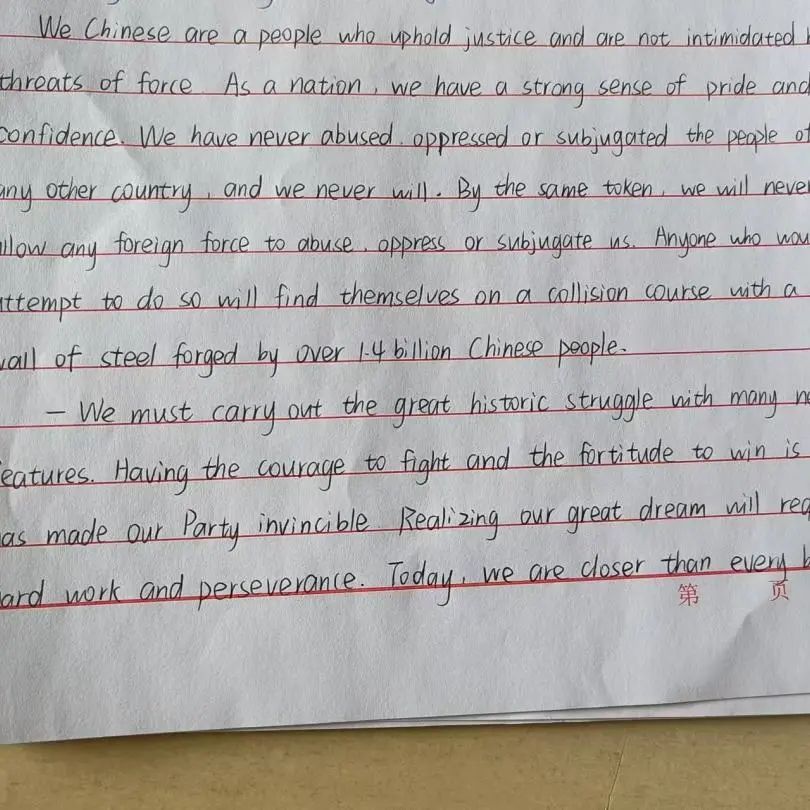 We Chinese are a people who uphold justice and are not intimidated
threats of force. As a nation, we have a strong sense of pride and
confidence. We have never abused, oppressed or subjugated the people of
any other country, and we never will. By the same token, we will never
allow any foreign force to abuse, oppress or subjugate us. Anyone who wou
attempt to do so will find themselves on a collision course with a
wall of steel forged by over 1.4 billion Chinese people.
— We must carry out the great historic struggle with many
eatures. Having the courage to fight and the fortitude to win is
as made our Party invincible. Realizing our great dream will req
ard work and perseverance. Today, we are closer than every
第 页